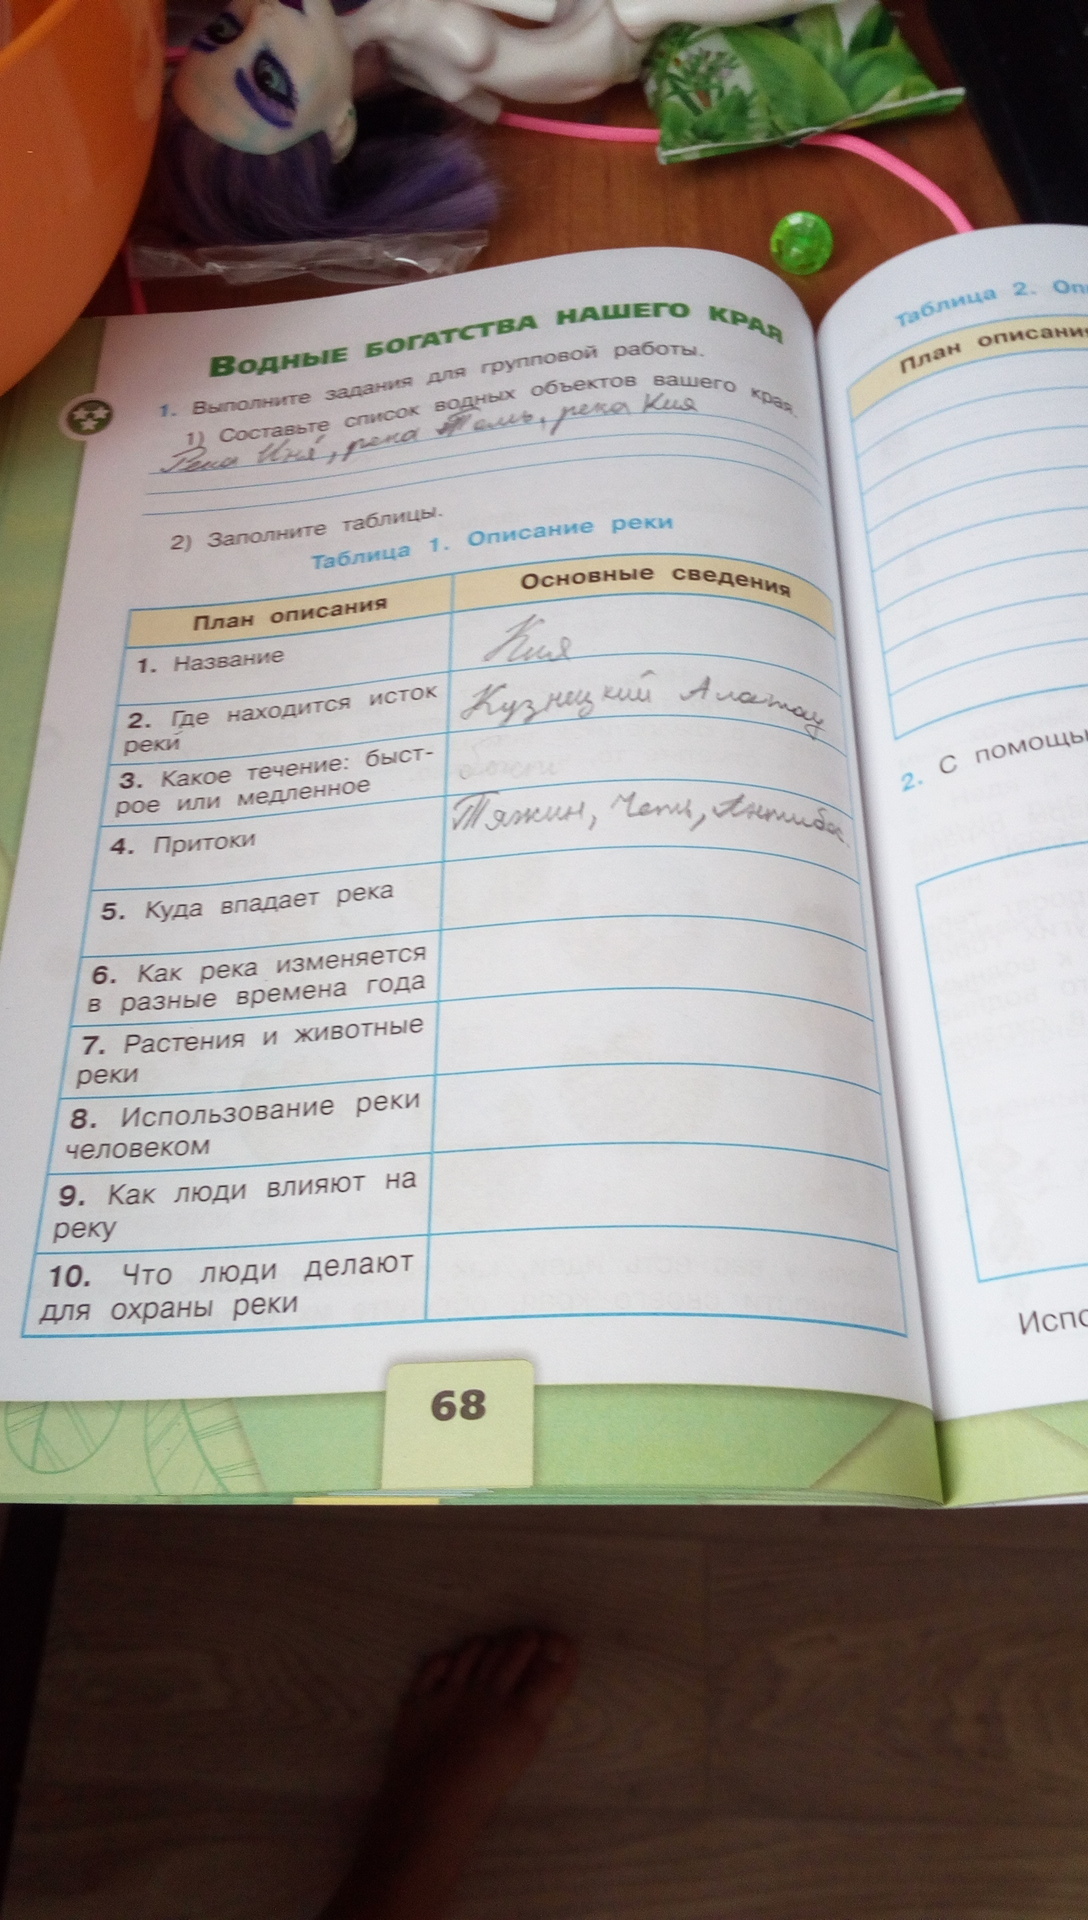 ВОДНЫЕ БОГАТСТВА НАШЕГО КРАЯ
1. Выполните задания для групповой работы.
1) Составьте список водных объектов вашего края.
Река Иня, река Томь, река Кия
2) Заполните таблицы.
Таблица 1. Описание реки
План описания Основные сведения
1. Название Кия
2. Где находится исток реки Кузнецкий Алатау
3. Какое течение: быст-
рое или медленное
4. Притоки Тяжин, Чети, Антибес
5. Куда впадает река
6. Как река изменяется
в разные времена года
7. Растения и животные
реки
8. Использование реки
человеком
9. Как люди влияют на
реку
10. Что люди делают
для охраны реки
68
Таблица 2. Опи
План описания
2. С помощь
Испо